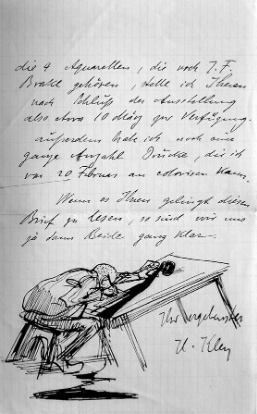 die 4 Aquarellen, die noch J. F.
Brakl gehören, stelle ich Ihnen
nach Schluß der Ausstellung
also etwa 10 März zur Verfügung.
außerdem habe ich noch eine
ganze Anzahl Drucke, die ich
vor 20 Februar an coloriren kann.
Wenn es Ihnen gelingt diesen
Brief zu lesen, so sind wir uns
ja dann Beide ganz klar.
Ihr ergebenster
H. Kley